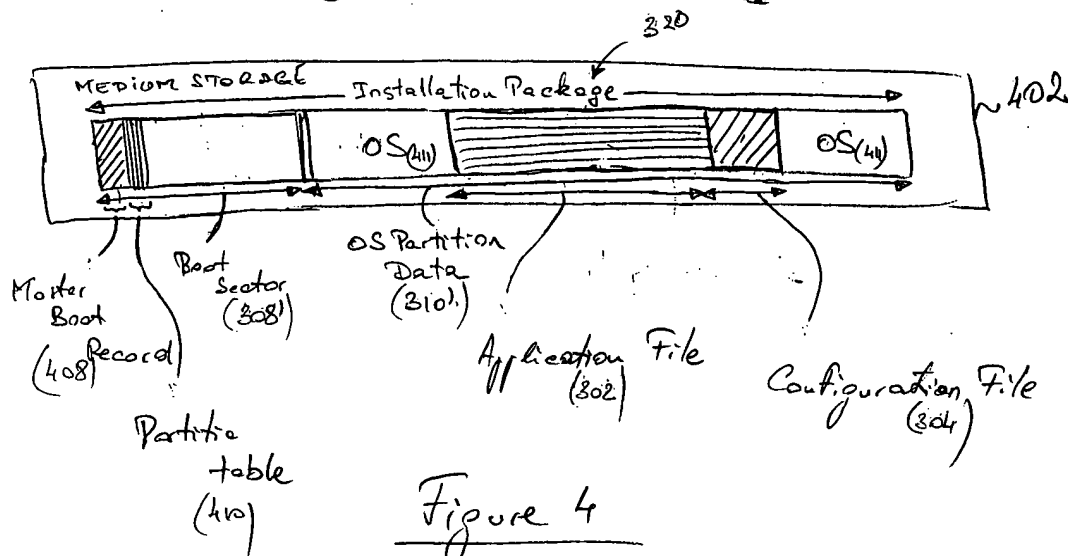 320
MEDIUM STORAGE
Installation Package
402
OS(411)
OS(411)
Master
Boot
Record
(408)
Boot
Sector
(308')
OS Partition
Data
(310')
Application File
(302)
Configuration File
(304)
Partitio
table
(410)
Figure 4